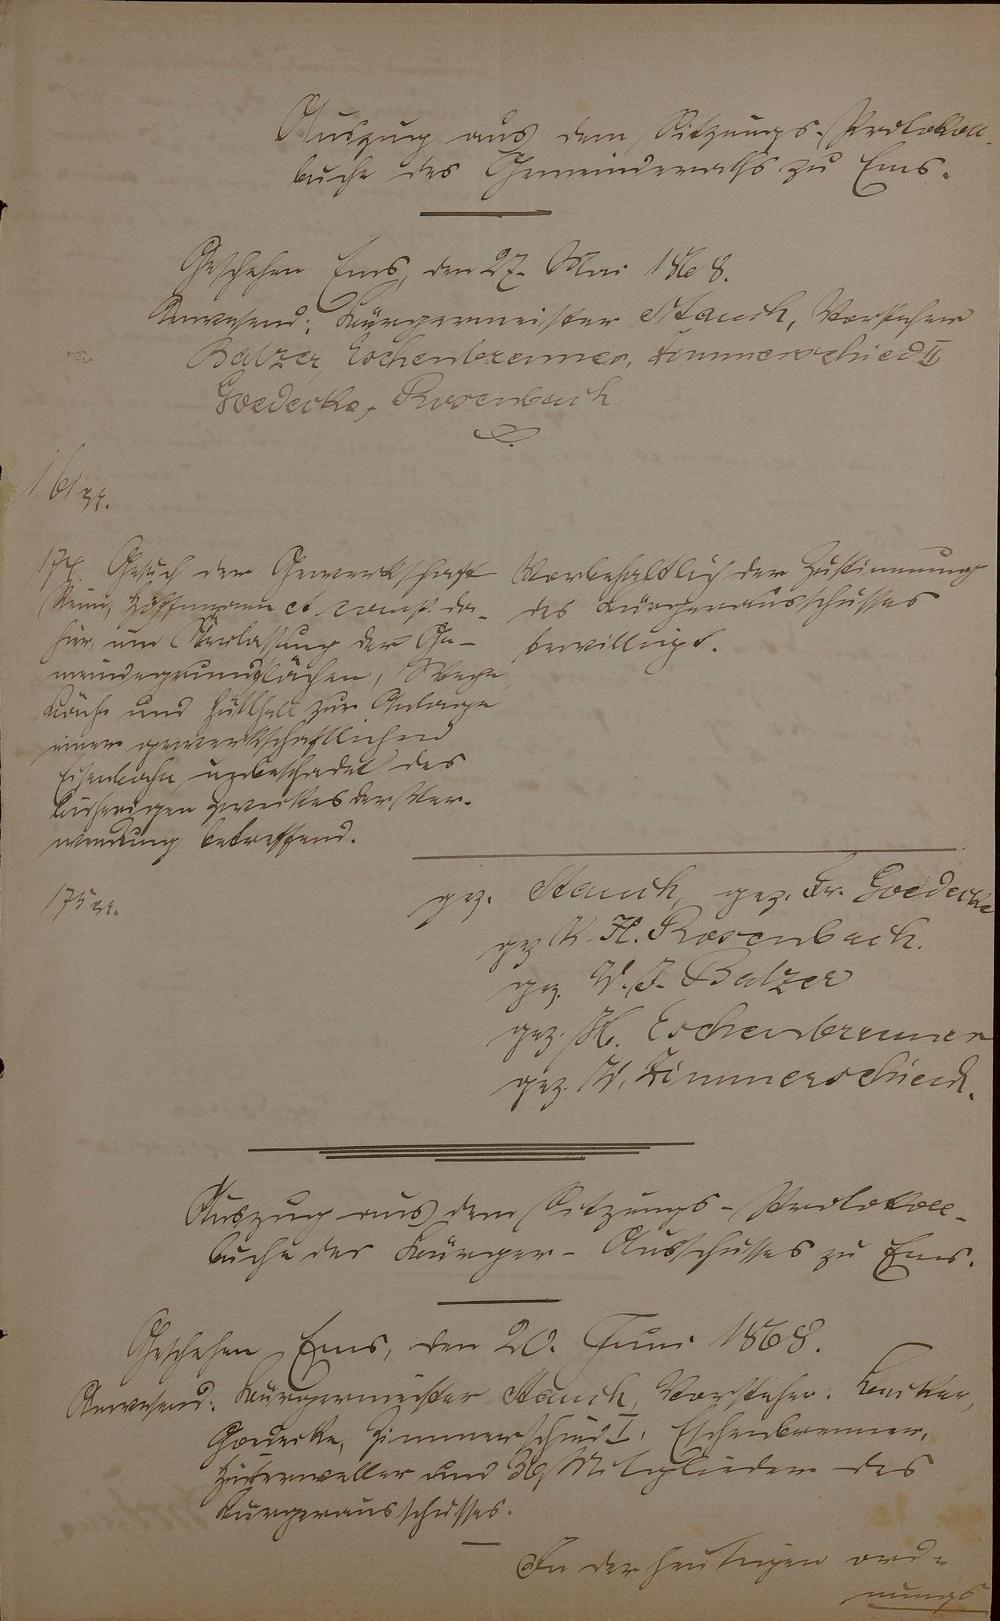 Auszug aus dem Sitzungs-Protokoll-
buche des Gemeinderaths zu Ems.
Geschehen Ems, den 27. Mai 1868.
Anwesend: Bürgermeister Stauch, Vorsteher
Balzer, Eschenbrenner, Zimmerschied II
Goedecke, Rosenbach
174. Gesuch der Gewerkschaft
et comp. da-
hier, um Überlassung der Ge-
meindegrundflächen, Wege
und zur Anlage
einer gewerkschaftlichen
Eisenbahn, unbeschadet des
bisherigen Zweckes der Ver-
wendung betreffend.
Vorbehaltlich der Zustimmung
des Bürgerausschusses
bewilligt.
gez. Stauch, gez. Fr. Goedecke
gez. K. H. Rosenbach.
gez. W. J. Balzer
gez. H. Eschenbrenner
gez. W. Zimmerschied.
Auszug aus dem Sitzungs-Protokoll-
buche des Bürger-Ausschusses zu Ems.
Geschehen Ems, den 20. Juni 1868.
Anwesend: Bürgermeister Stauch, Vorsteher:
Goedecke, Zimmerschied I, Eschenbrenner,
und 36 Mitglieder des
Bürgerausschusses.
In der heutigen ord-
nungs